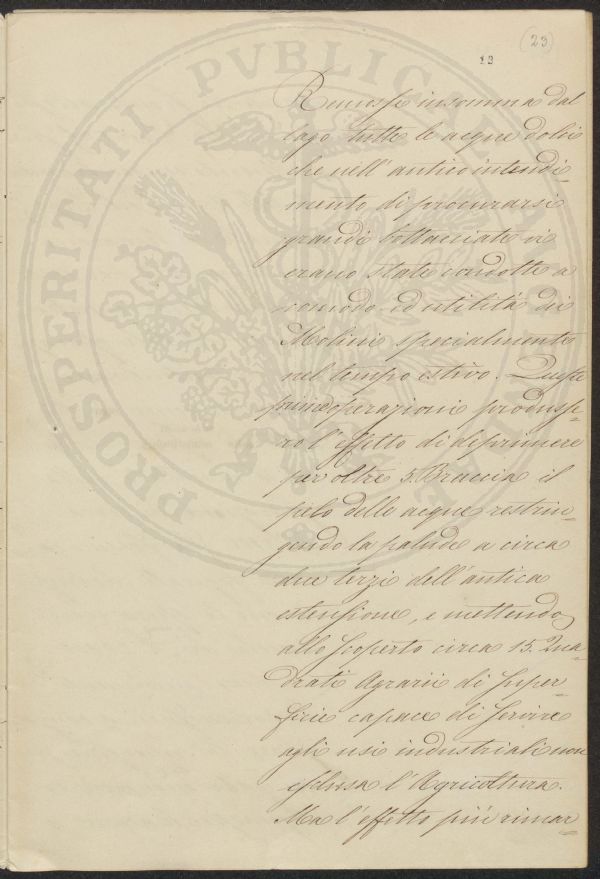 23
13
Remosse insomma dal
lago tutte le acque dolci
che nell'antico intendi=
mento di procurarsi
grandi bottacciate vi
erano state condotte a
comodo ed utilità di
Molini specialmente
nel tempo estivo. Queste
prime operazioni produsse=
ro l'effetto di deprimere
per oltre 5. Braccia il
pelo delle acque restrin=
gendo la palude a circa
due terzi dell'antica
estensione, e mettendo
allo scoperto circa 15. Qua=
drati Agrarii di super=
ficie capace di servire
agli usi industriali non
esclusa l'Agricoltura.
Ma l'effetto più rimar=
PROSPERITATI PVBLICAE